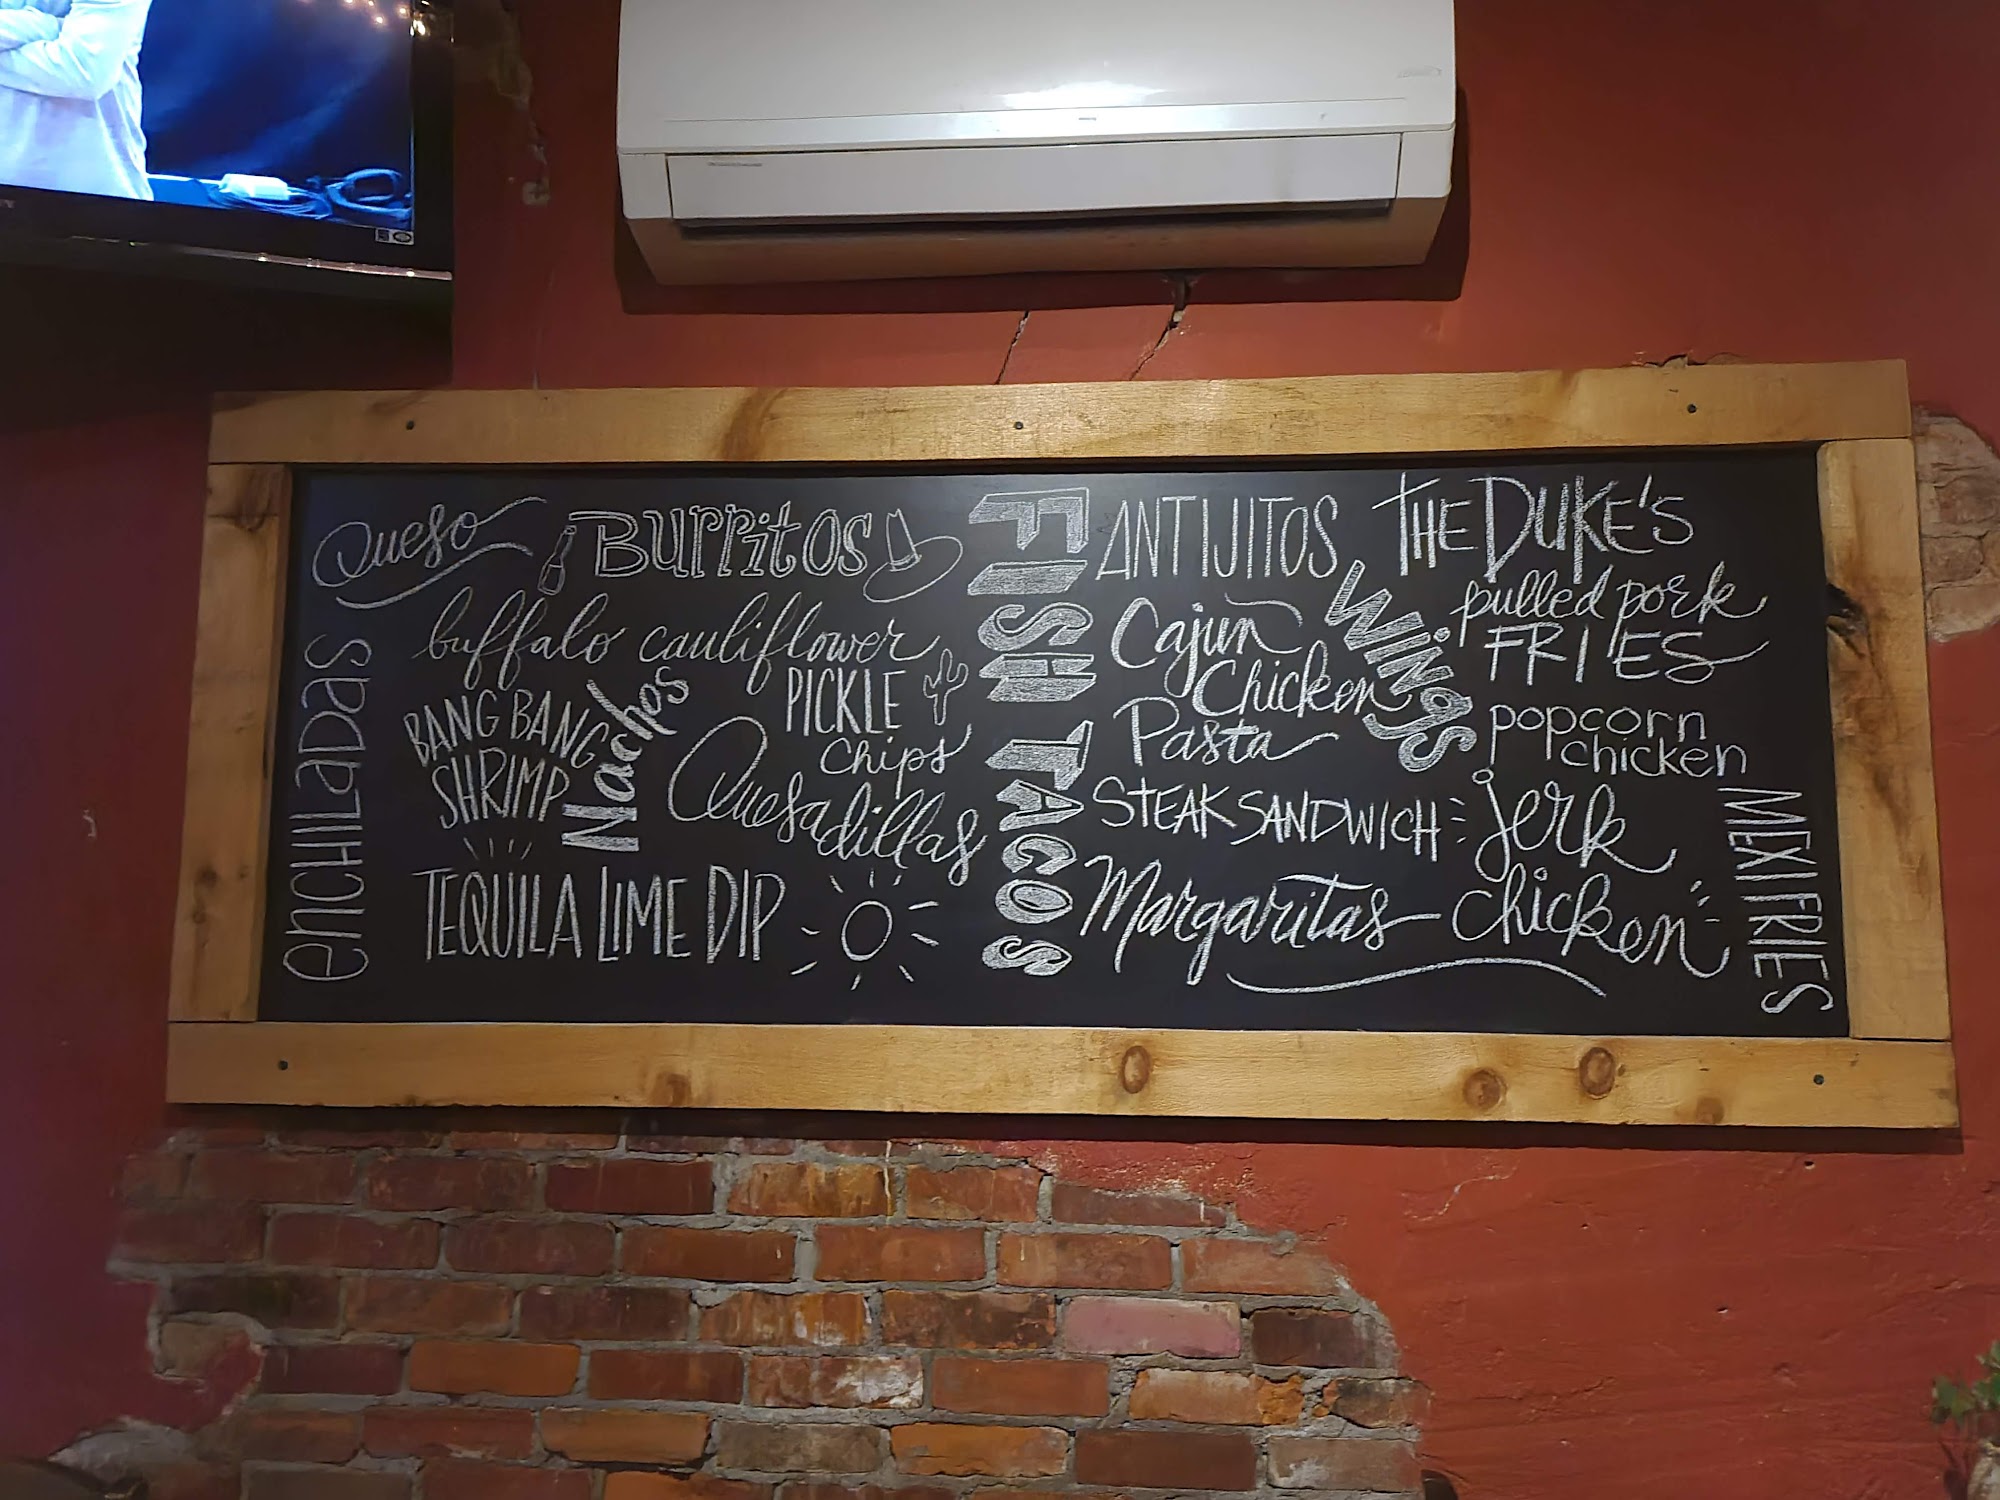 Queso
Burritos
buffalo cauliflower
ENCHILADAS
BANG BANG
SHRIMP
Nachos
PICKLE
chips
Quesadillas
TEQUILA LIME DIP
FISH TACOS
ANTIJITOS
THE DUKE'S
pulled pork
FRIES
Cajun
Chicken
Pasta
WINGS
popcorn
chicken
STEAK SANDWICH
jerk
chicken
Margaritas
MEXI FRIES